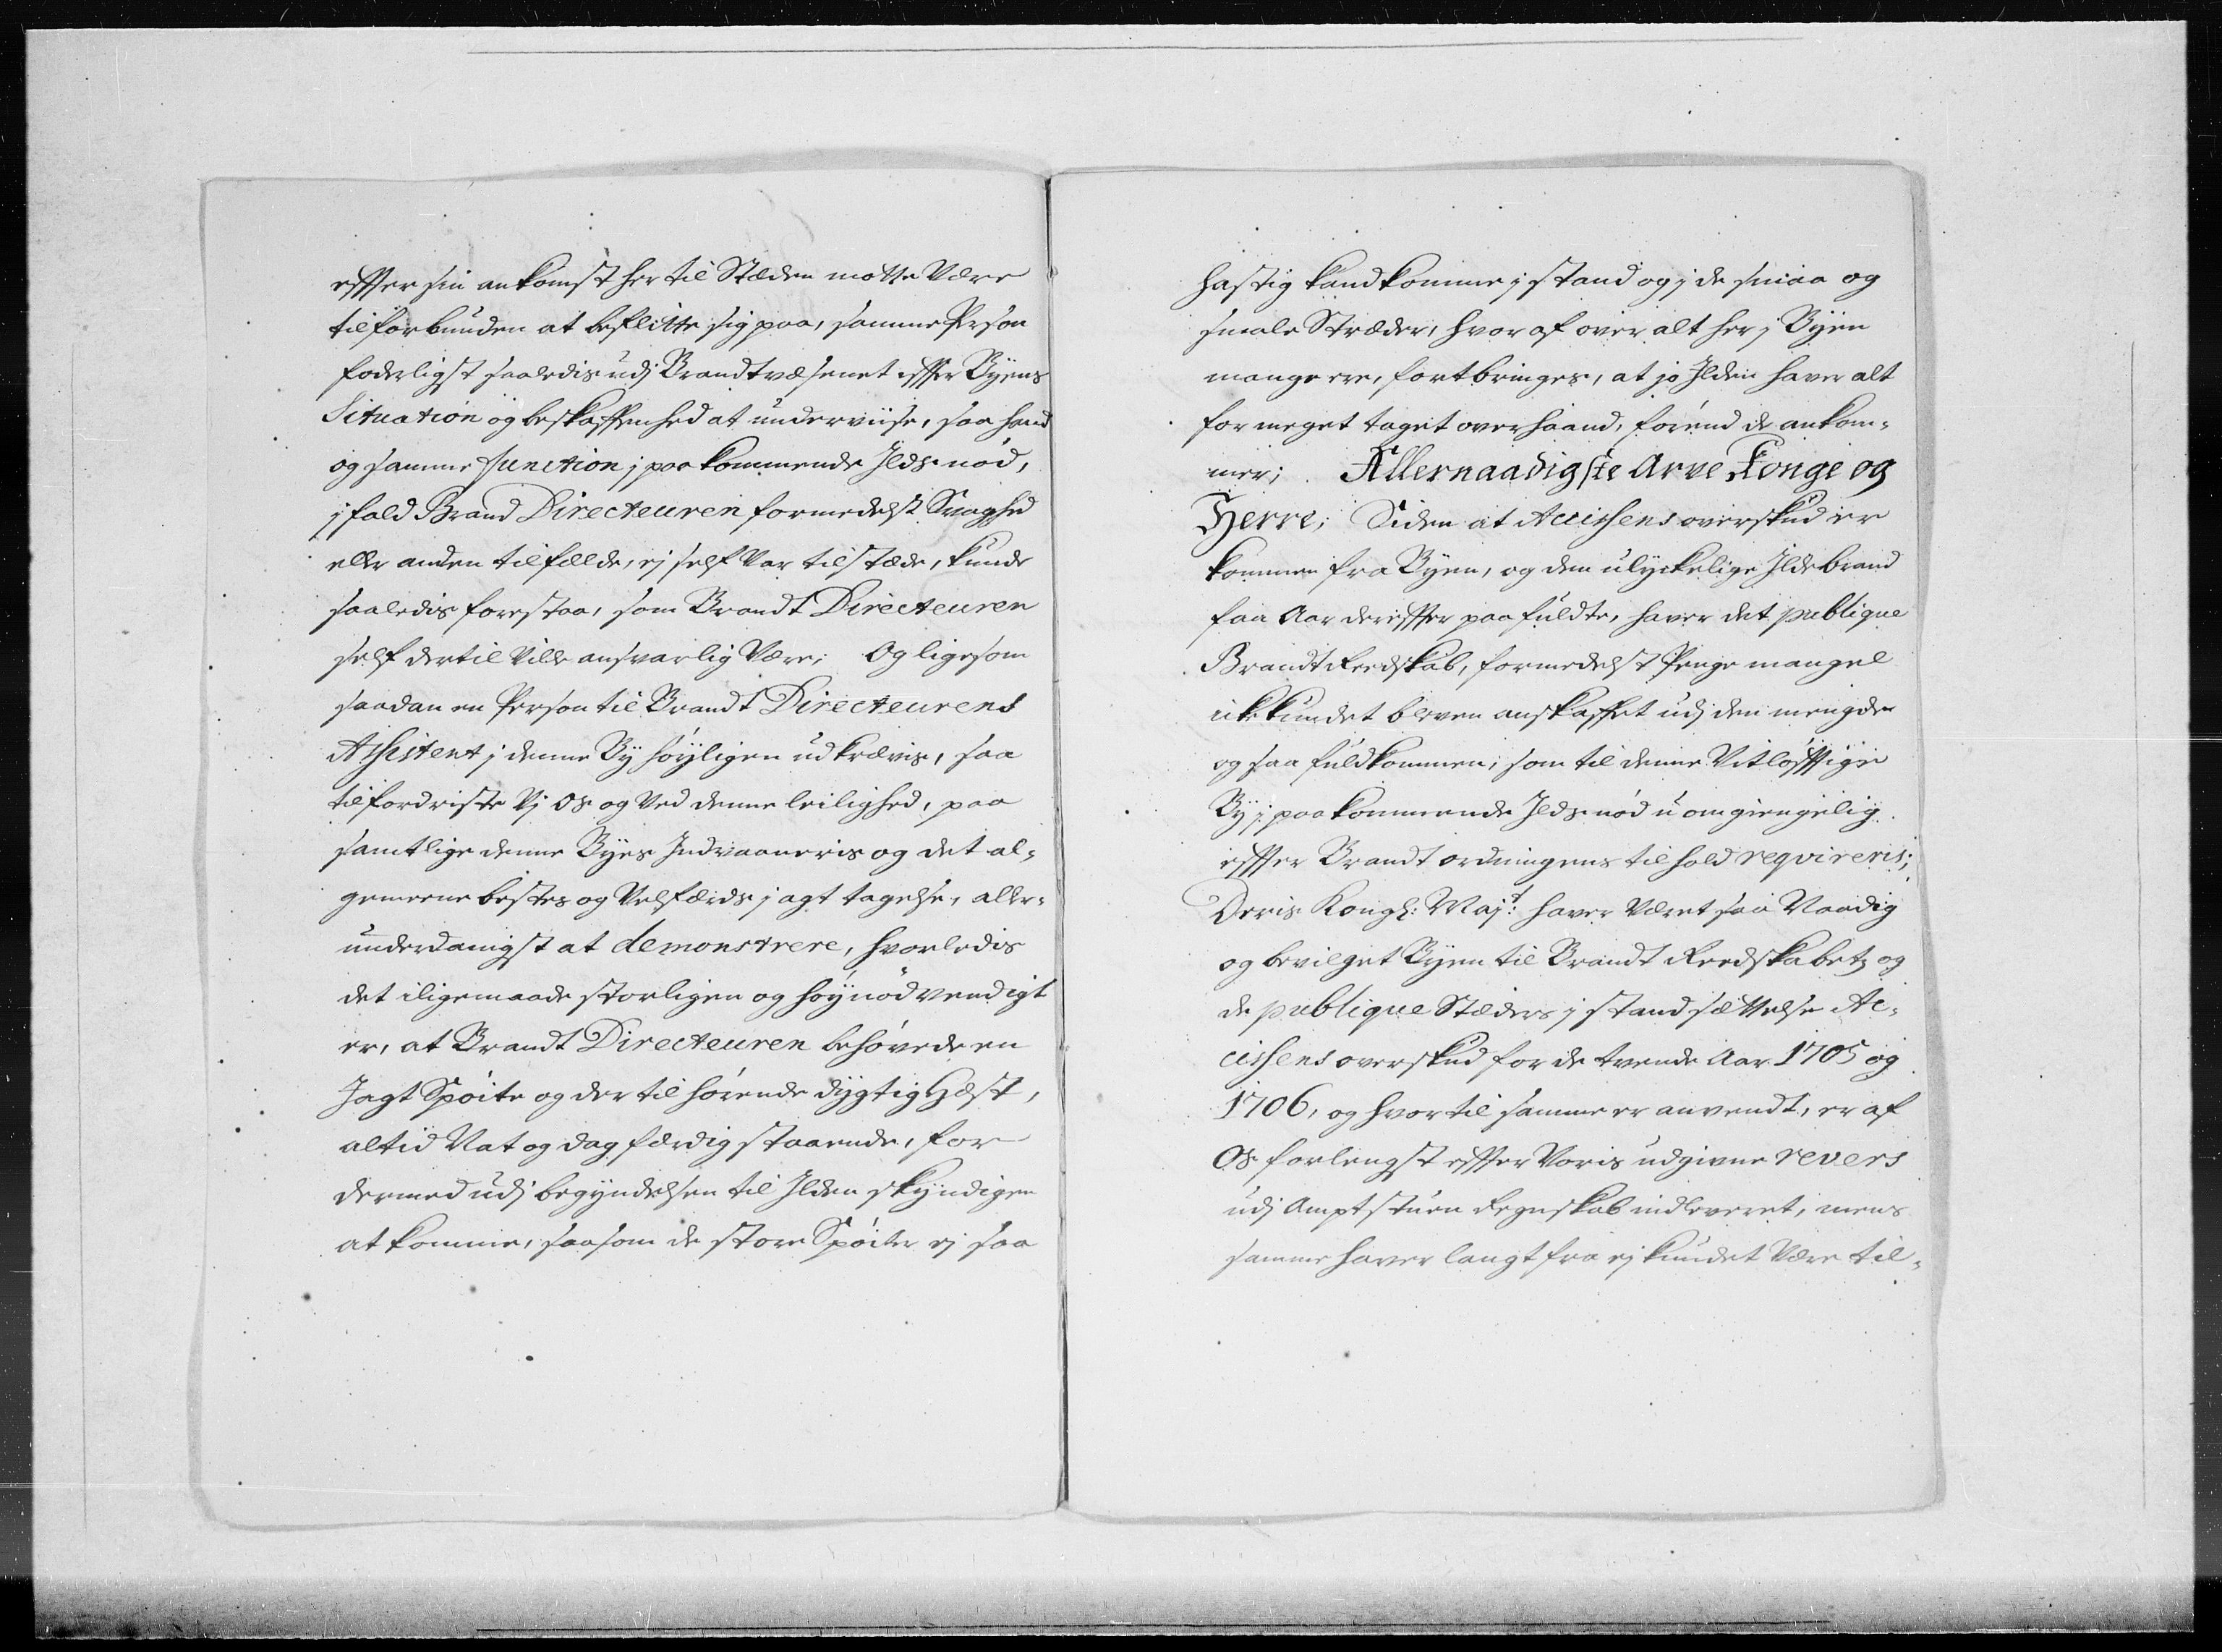 effter sin ankomst her til Stæden motte Være
tilforbunden at beflitte sig paa, samme Person
foderligst saaledis udj Brandtvæsenet effter Byens
Situation og beskaffenhed at underviise, saa hand
og samme function j paakommende Ilds nød,
j fald Brand Directeuren formedelst Svaghed
eller anden tilfælde, ej self Var tilstæde, kunde
saaledis forestaa, som Brandt Directeuren
self dertil Ville ansvarlig Være; Og ligesom
saadan en Person til Brandt Directeurens
Assistent j denne By høyligen udkrævis, saa
tilfordriste Vj Os og Ved denne leilighed, paa
samtlige denne Byes Indvaaneris og det al-
gemeene bestes og Velfærds j agt tagelse, aller-
underdanigst at demonstrere, hvorledis
det iligemaade storligen og høynødvendigt
er, at Brandt Directeuren behøvede en
Jagt Spøite og der til hørende dygtig Hæst,
altid Nat og dag færdig staaende, for
dermed udj begyndelsen til Ilden skyndigen
at komme, saasom de store Spøiter ej saa
hastig kand komme j stand og j de smaa og
smale Stræder, hvor af over alt her j Byen
mange ere, fortbringes, at jo Ilden haver alt
for meget taget overhaand, førend de ankom-
mer; Allernaadigste Arve Konge og
Herre; Siden at Accissens overskud er
kommen fra Byen, og den ulyckelige Ildebrand
faa Aar dereffter paafuldte, haver det publique
Brandt Reedskab, formedelst Penge mangel
ikke kundet bleven anskaffet udj den mengde
og saa fuldkommen, som til denne Vitløfftige
By j paakommende Ilds nød uomgiengelig
effter Brandt ordningens tilhold requireris;
Deris Kongl: Maj:t haver Været saa Naadig
og bevilget Byen til Brandt Reedskabetz og
de publique Stæders j stand sættelse Ac-
cissens overskud for de tvende Aar 1705 og
1706, og hvortil samme er anvendt, er af
Os forlengst effter Voris udgivne revers
udj Amptstuen Regnskab indleveret, mens
samme haver langt fra ej kundet Være til-